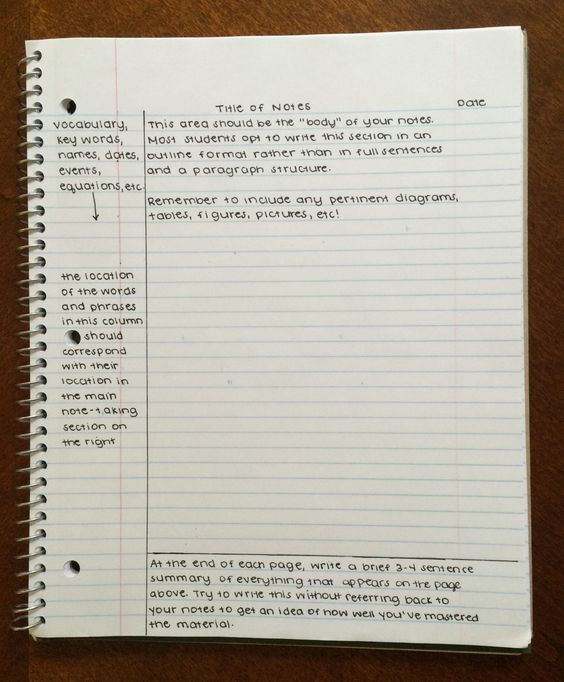 Title of Notes
Date
vocabulary,
key words,
names, dates,
events,
equations, etc.
the location
of the words
and phrases
in this column
should
correspond
with their
location in
the main
note-taking
section on
the right
This area should be the "body" of your notes.
Most students opt to write this section in an
outline format rather than in full sentences
and a paragraph structure.
Remember to include any pertinent diagrams,
tables, figures, pictures, etc!
At the end of each page, write a brief 3-4 sentence
summary of everything that appears on the page
above. Try to write this without referring back to
your notes to get an idea of how well you've mastered
the material.